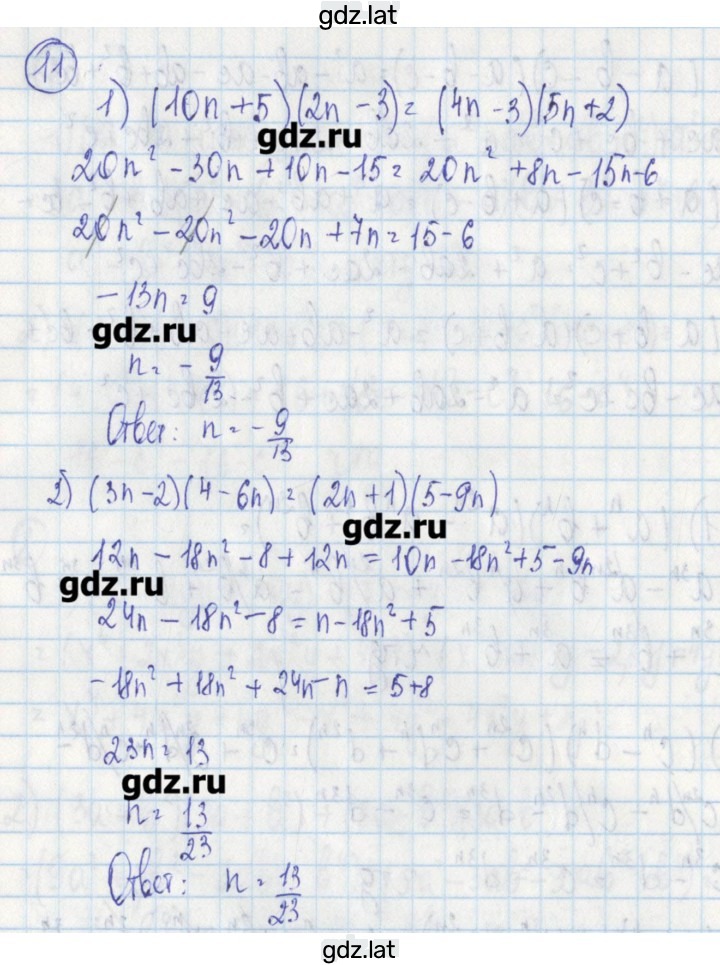 gdz.lat
11
1) (10n + 5)(2n - 3) = (4n - 3)(5n + 2)
gdz.ru
20n² - 30n + 10n - 15 = 20n² + 8n - 15n - 6
20n² - 20n² - 20n + 7n = 15 - 6
- 13n = 9
gdz.ru
n = - 9/13
Ответ: n = - 9/13
2) (3n - 2)(4 - 6n) = (2n + 1)(5 - 9n)
gdz.ru
12n - 18n² - 8 + 12n = 10n - 18n² + 5 - 9n
gdz.ru
24n - 18n² - 8 = n - 18n² + 5
- 18n² + 18n² + 24n - n = 5 + 8
23n = 13
gdz.ru
n = 13/23
Ответ: n = 13/23
gdz.lat